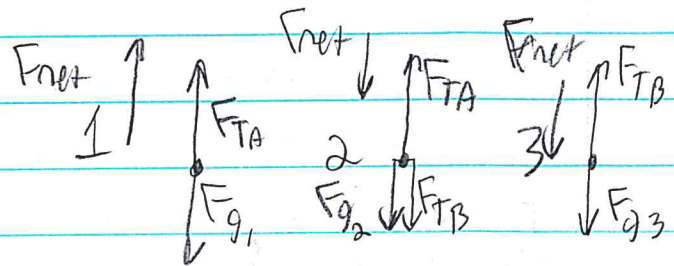 Fnet
1
F_TA
F_g1
Fnet
2
F_TA
F_g2 F_TB
Fnet
3
F_TB
F_g3